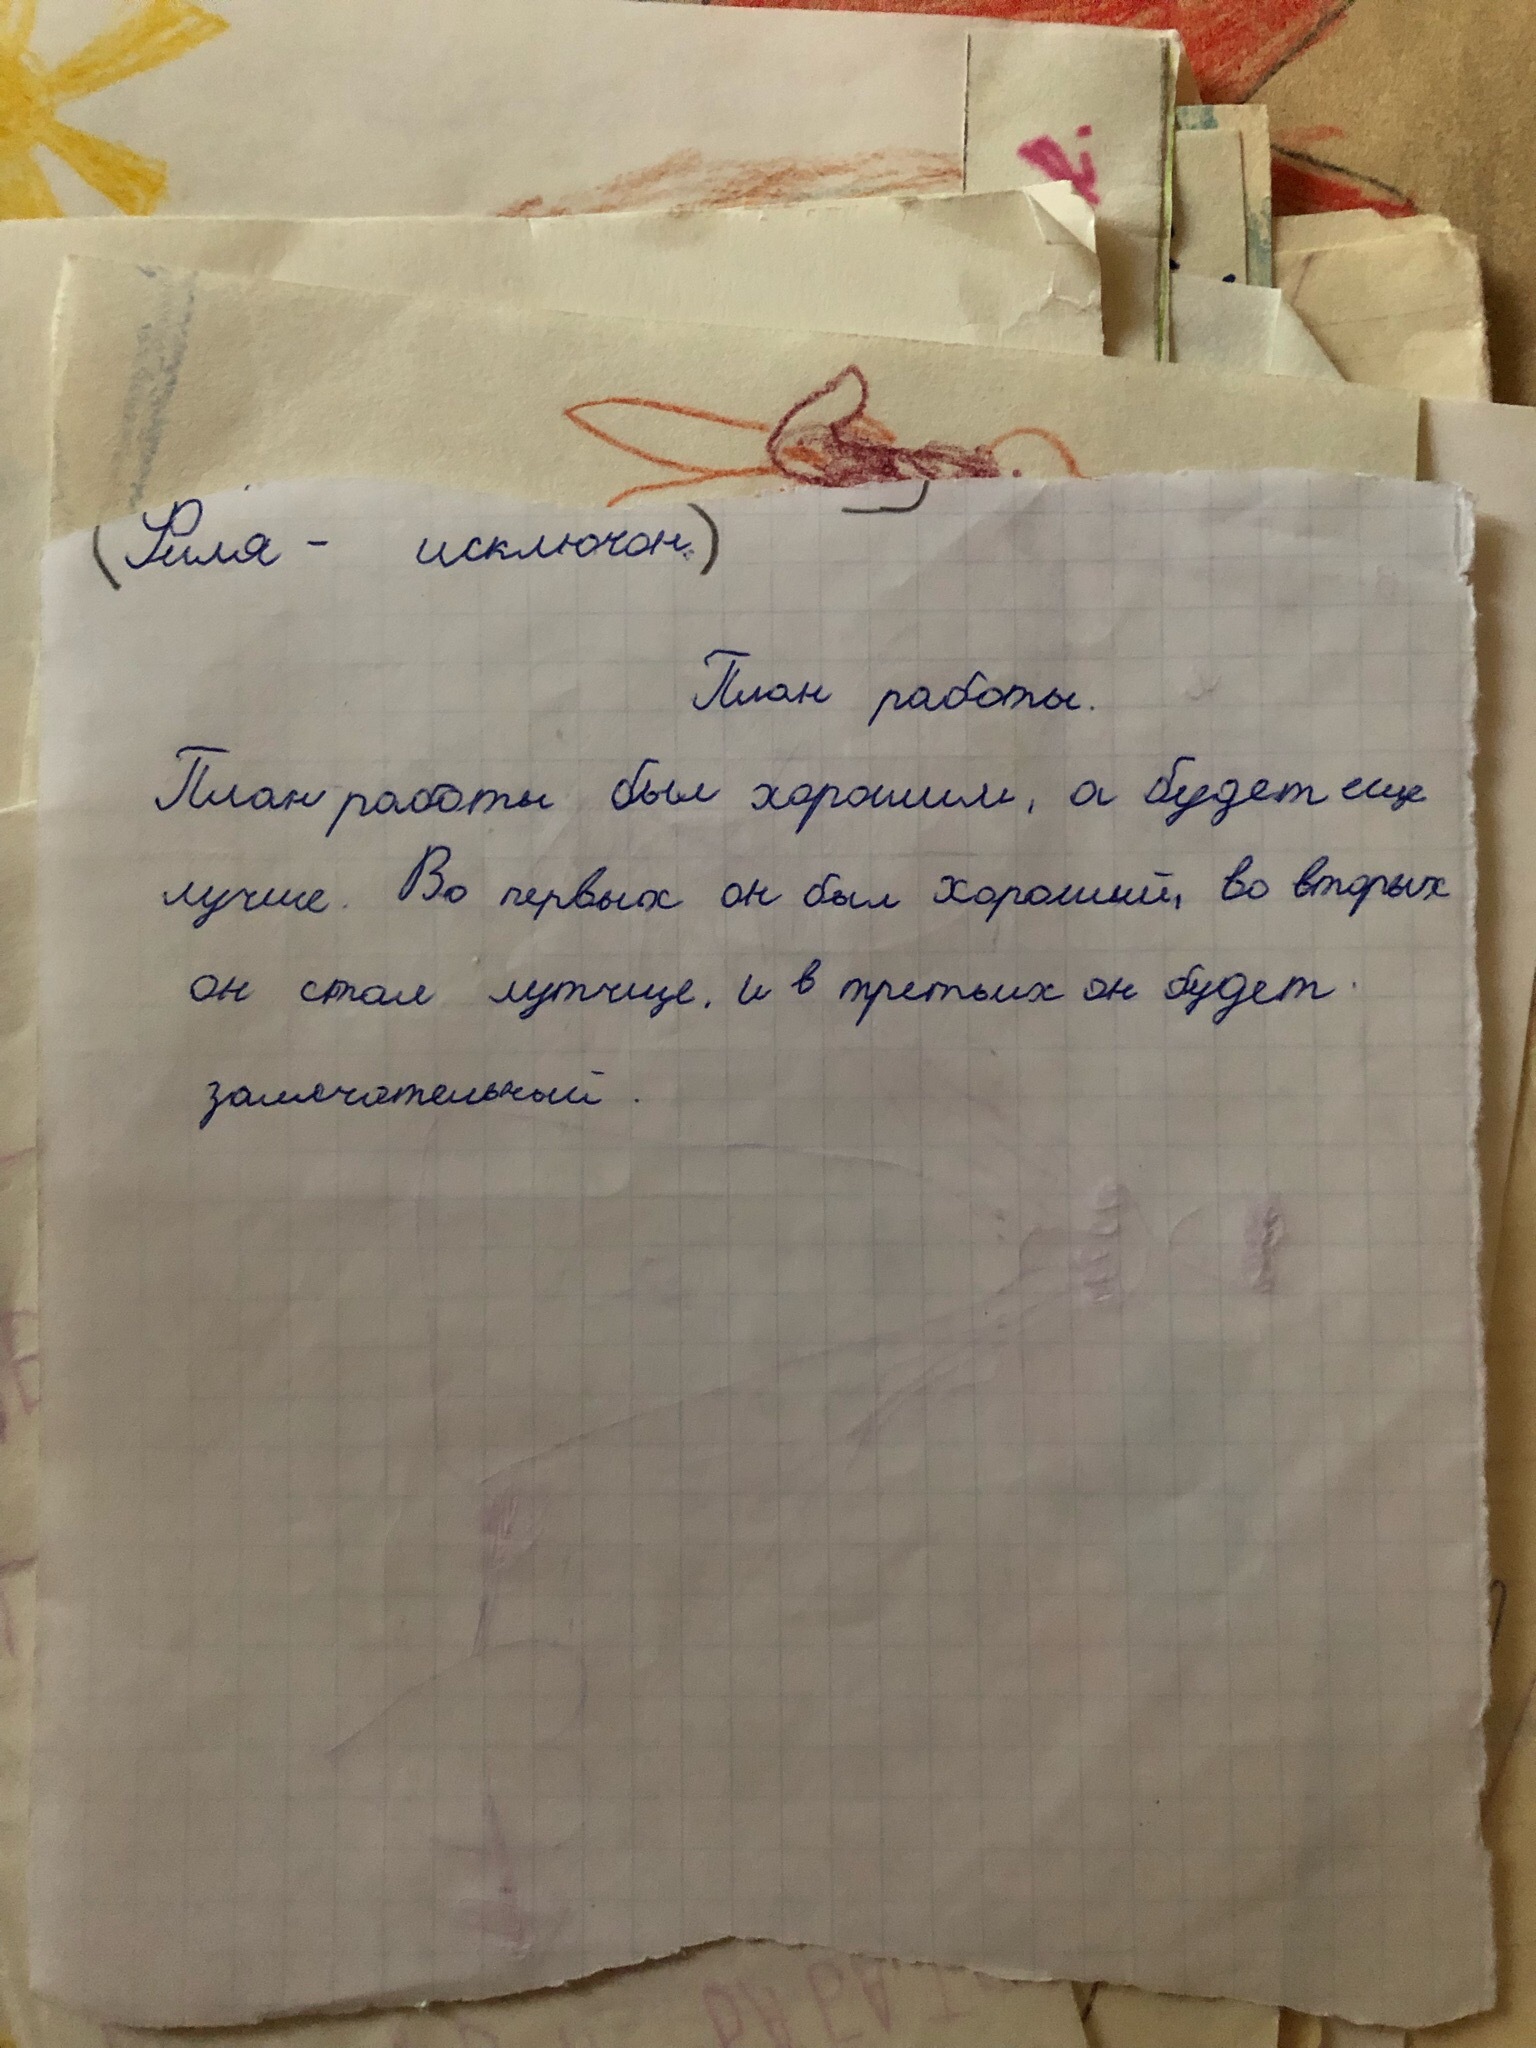 (Филя - исключон.)
План работы.
План работы был хорошим, а будет еще
лучше. Во первых он был хороший, во вторых
он стал лутчще, и в третьих он будет
замечательный.